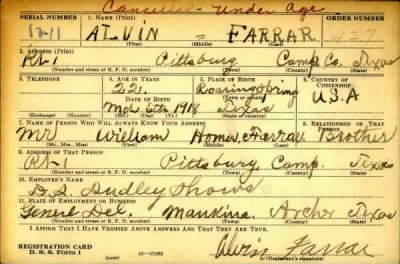 Cancelled - Under Age
SERIAL NUMBER 1. NAME (Print) ORDER NUMBER
ALVIN — FARRAR 427
(First) (Middle) (Last)
2. ADDRESS (Print)
Rt-1 Pittsburg Camp Co. Texas
(Number and street or R. F. D. number) (Town) (County) (State)
3. TELEPHONE 4. AGE IN YEARS 5. PLACE OF BIRTH 6. COUNTRY OF CITIZENSHIP
22. Roaring Spring
DATE OF BIRTH (Town or county)
Mch 6th 1918 Texas U.S.A
(Exchange) (Number) (Mo.) (Day) (Yr.) (State or country)
7. NAME OF PERSON WHO WILL ALWAYS KNOW YOUR ADDRESS 8. RELATIONSHIP OF THAT PERSON
Mr William Homer Farrar Brother
(Mr., Mrs., Miss) (First) (Middle) (Last)
9. ADDRESS OF THAT PERSON
Rt-1 Pittsburg Camp. Texas
(Number and street or R. F. D. number) (Town) (County) (State)
10. EMPLOYER'S NAME
D.S. Dudley Shows
11. PLACE OF EMPLOYMENT OR BUSINESS
General Del. Archer Texas
(Number and street or R. F. D. number) (Town) (County) (State)
I AFFIRM THAT I HAVE VERIFIED ABOVE ANSWERS AND THAT THEY ARE TRUE.
REGISTRATION CARD
D. S. S. Form 1 (over) Alvin Farrar
(Registrant's signature)